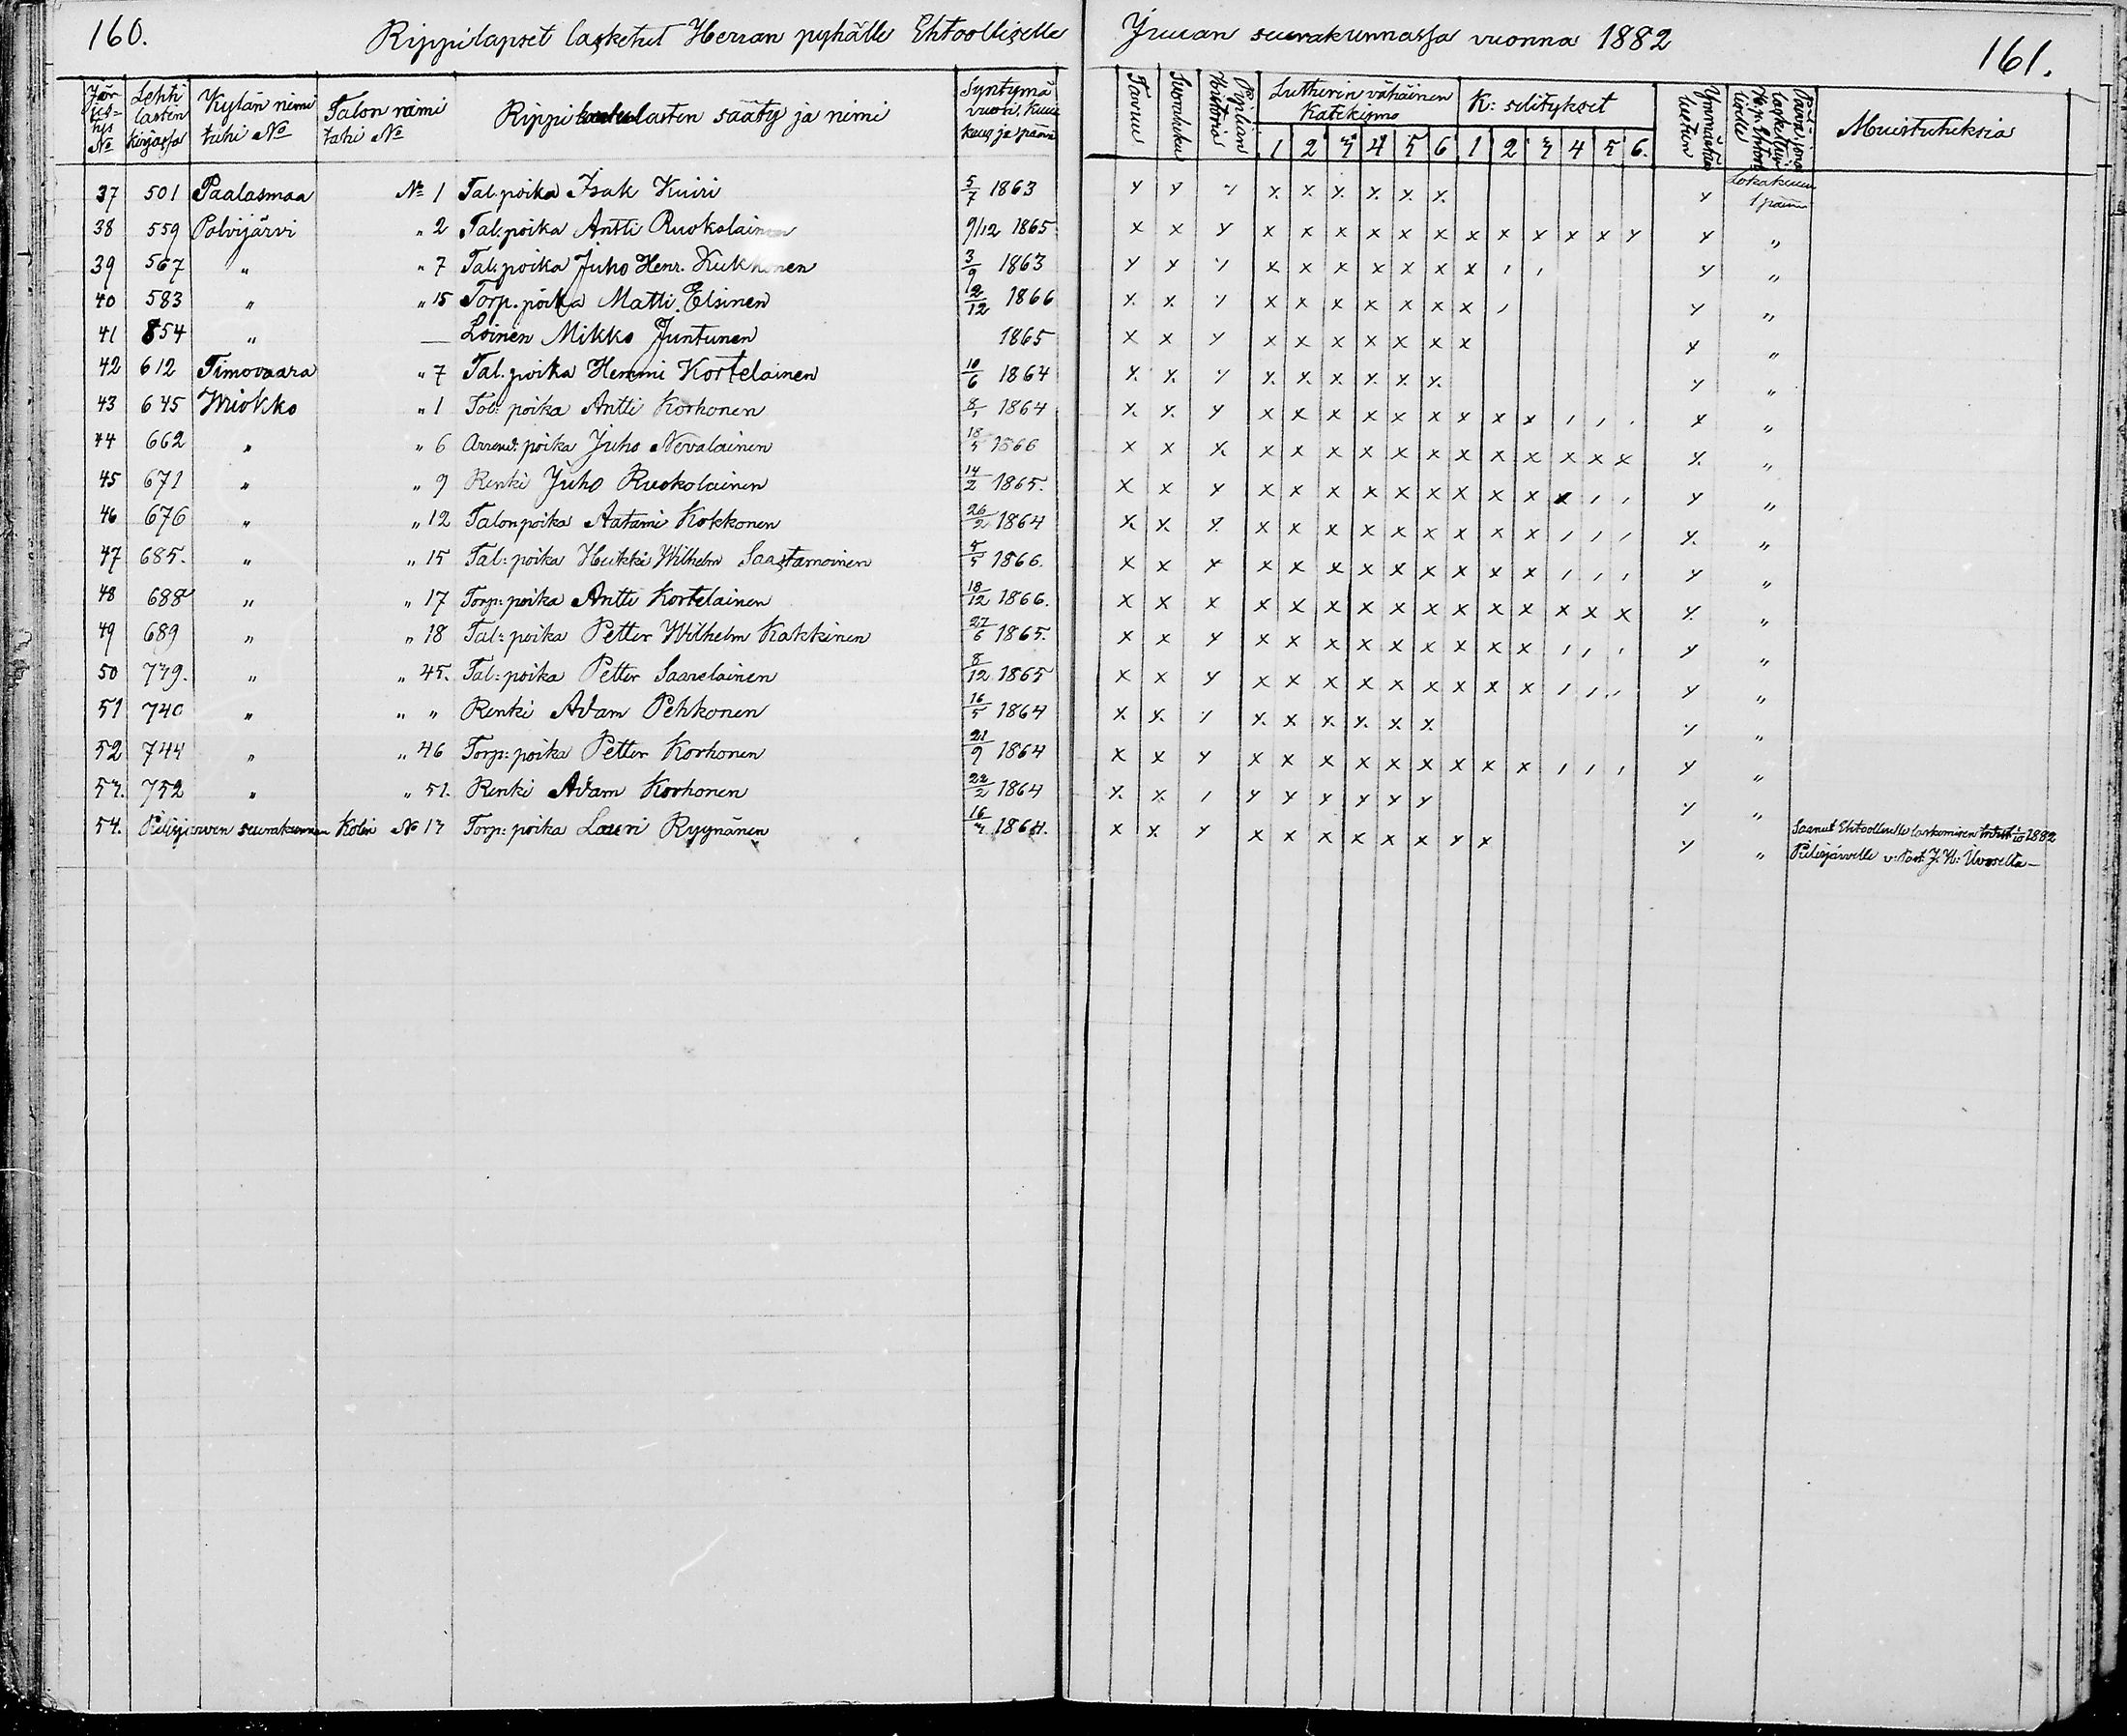 160. Rippilapset lasketut Herran pyhälle Ehtoolliselle Juuan seurakunnassa vuonna 1882 161.
Jär jes= tys No
Lehti lasten kirjassa
Kylän nimi tahi No
Talon nimi tahi No
Rippi lasten sääty ja nimi
Syntymä vuosi, kuu kaus ja päivä
Tavuu
Suoraluku
Piplian Historia
Lutherin vähäinen Katekismo
1 2 3 4 5 6
K: selitykset
1 2 3 4 5 6.
Ymmärrettä luetun
Muistutuksia
37 501 Paalasmaa No 1 Tal: poika Isak Kuiri 5/7 1863 Lokakuun 1 päivä
38 559 Polvijärvi " 2 Tal: poika Antti Ruokolainen 9/12 1865 "
39 567 " " 7 Tal: poika Juho Henr. Kukkonen 3/9 1863 "
40 583 " " 15 Torp. poika Matti Elsinen 2/12 1866 "
41 854 " — Loinen Mikko Juntunen 1865 "
42 612 Timovaara " 7 Tal. poika Hemmi Kortelainen 10/6 1864 "
43 645 Wiokko " 1 Tal: poika Antti Korhonen 8/1 1864 "
44 662 " " 6 Arrend: poika Juho Nevalainen 18/5 1866 "
45 671 " " 9 Renki Juho Ruokolainen 14/2 1865. "
46 676 " " 12 Talon poika Aatami Kokkonen 26/2 1864 "
47 685. " " 15 Tal: poika Heikki Wilhelm Saastamoinen 5/5 1866. "
48 688 " " 17 Torp: poika Antti Kortelainen 18/12 1866. "
49 689 " " 18 Tal: poika Petter Wilhelm Kakkinen 27/6 1865. "
50 739. " " 45. Tal: poika Petter Saarelainen 8/12 1865 "
51 740 " " " Renki Adam Pehkonen 16/5 1864 "
52 744 " " 46 Torp: poika Petter Korhonen 21/9 1864 "
53. 752 " " 51. Renki Adam Korhonen 22/2 1864 "
54. Pielisjärven seurakunnan Kolin No 13 Torp: poika Lauri Ryynänen 16/3 1864. " Saanut Ehtoolliselle laskemisen 1/10 1882
Pielisjärvelle v: Past. J. H: